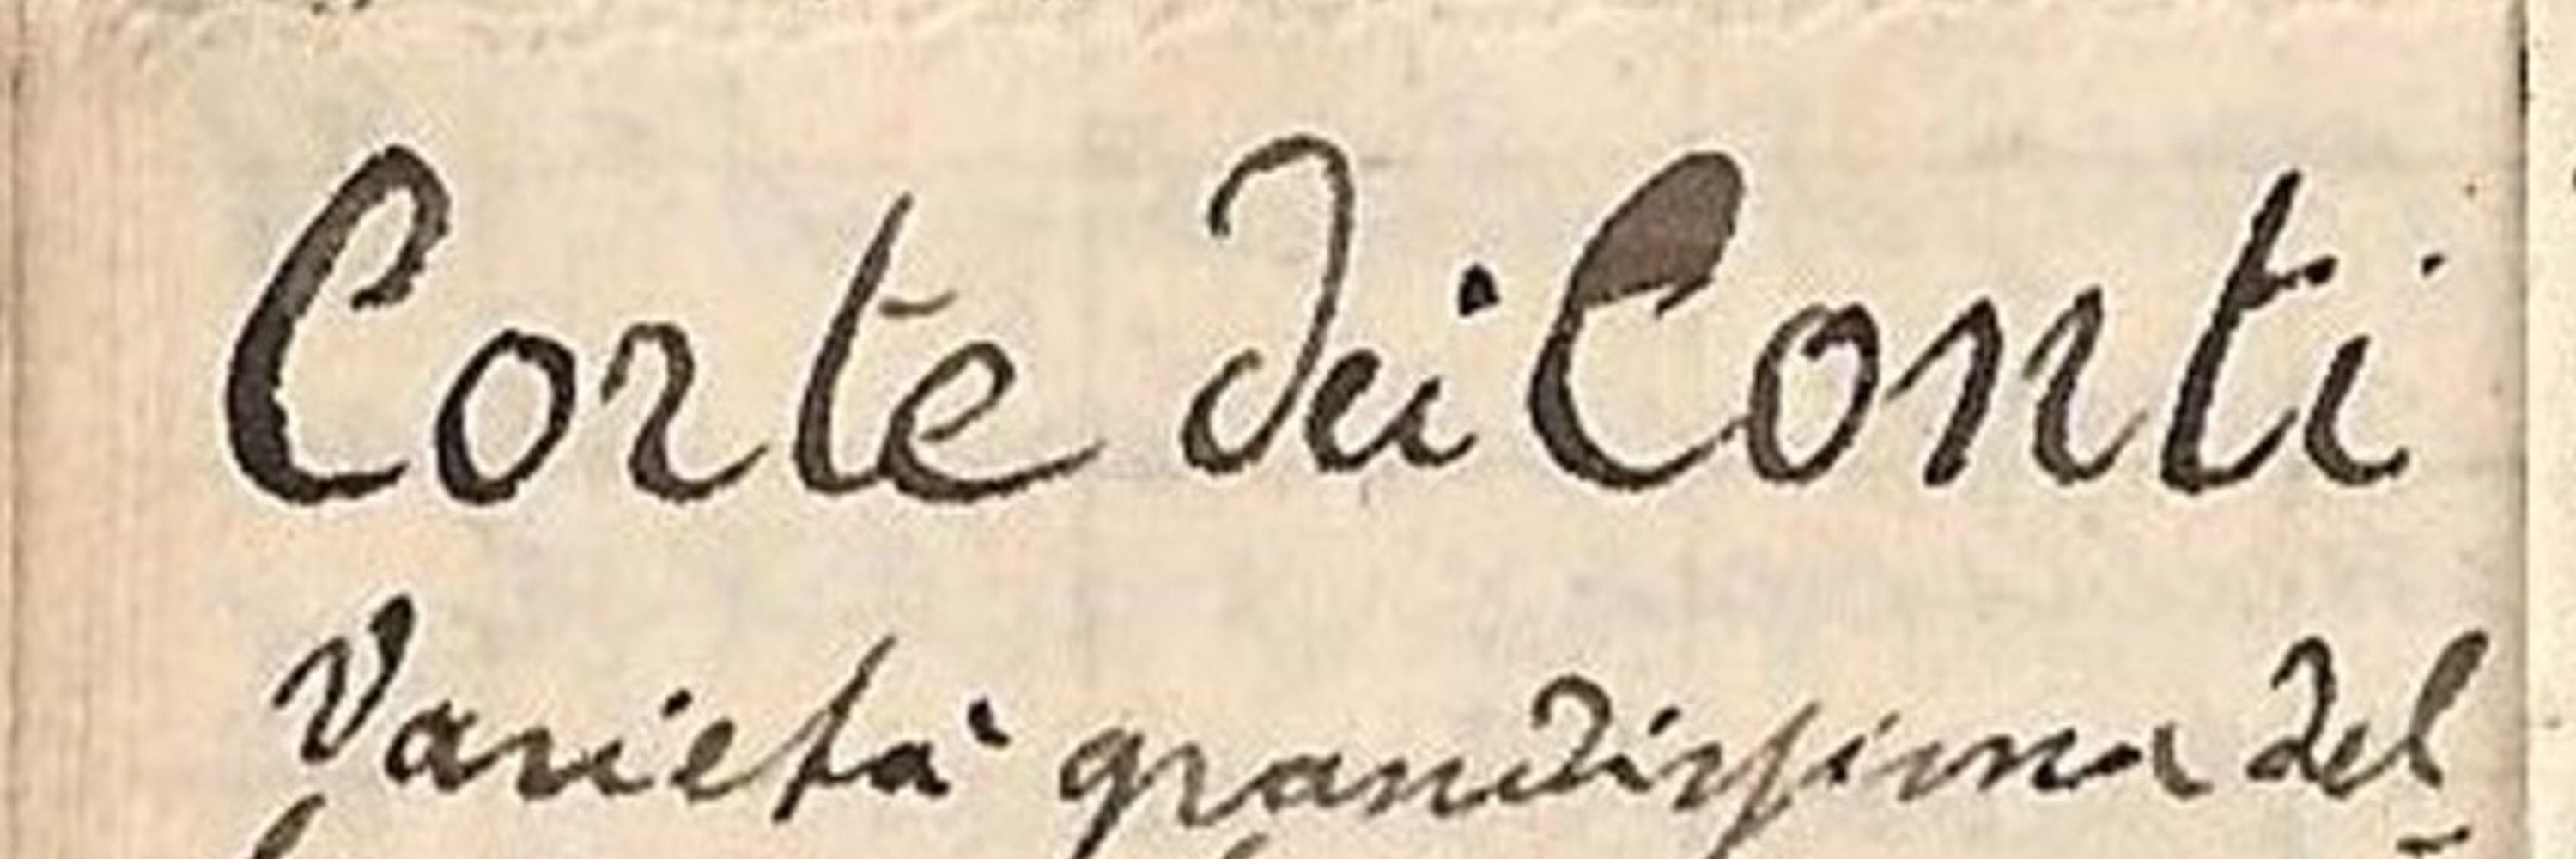 Corte dei Conti
Varietà grandissima del